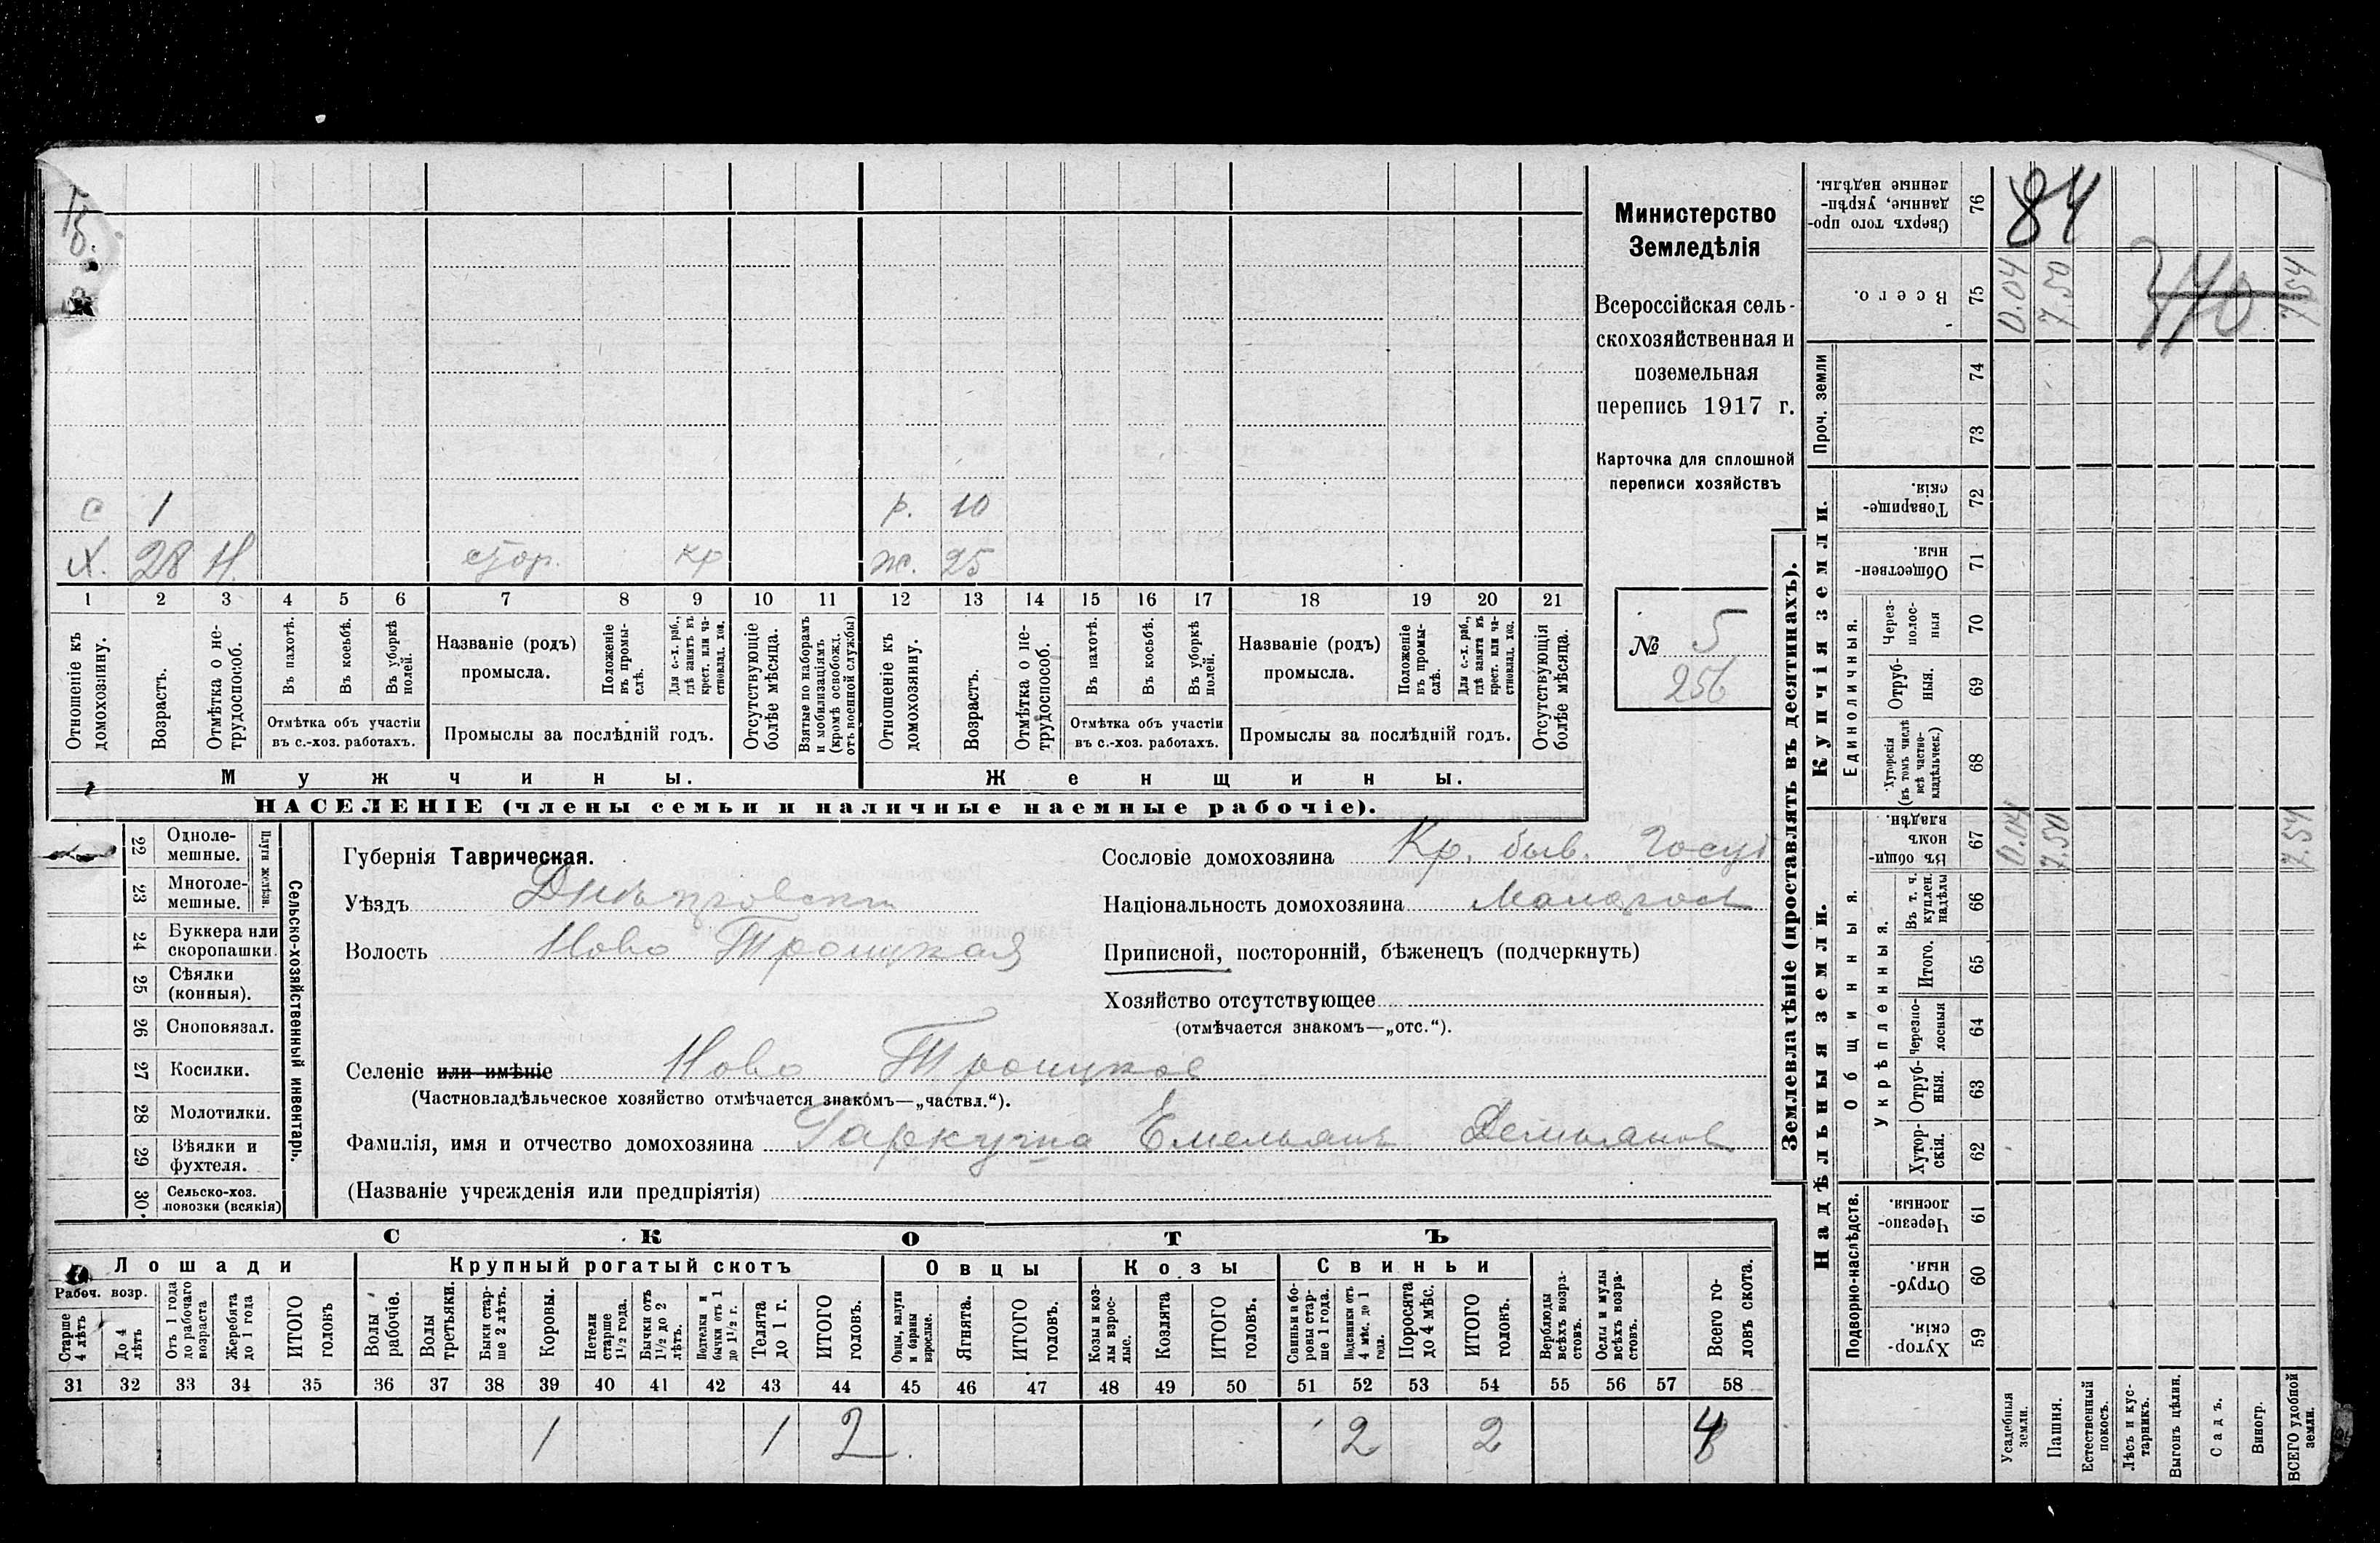 Министерство
Земледѣлія
Всероссійская сель-
скохозяйственная и
поземельная
перепись 1917 г.
Карточка для сплошной
переписи хозяйствъ
№ 5
256
с 1 р. 10
х. 28 Н. стор. кр ж. 25
1 2 3 4 5 6 7 8 9 10 11 12 13 14 15 16 17 18 19 20 21
Отношеніе къ домохозяину.
Возрастъ.
Отмѣтка о не-трудоспособ.
Въ пахотѣ.
Въ косьбѣ.
Въ уборкѣ полей.
Отмѣтка объ участіи въ с.-хоз. работахъ.
Названіе (родъ) промысла.
Положеніе въ промы-слѣ.
Для с.-х. раб., гдѣ занятъ въ крест. или ча-стновлад. хоз.
Промыслы за послѣдній годъ.
Отсутствующіе болѣе мѣсяца.
Взятые по наборамъ и мобилизаціямъ (кромѣ освобожд. отъ военной службы)
Отношеніе къ домохозяину.
Возрастъ.
Отмѣтка о не-трудоспособ.
Въ пахотѣ.
Въ косьбѣ.
Въ уборкѣ полей.
Отмѣтка объ участіи въ с.-хоз. работахъ.
Названіе (родъ) промысла.
Положеніе въ промы-слѣ.
Для с.-х. раб., гдѣ занята въ крест. или ча-стновлад. хоз.
Промыслы за послѣдній годъ.
Отсутствующія болѣе мѣсяца.
Мужчины. Женщины.
НАСЕЛЕНІЕ (члены семьи и наличные наемные рабочіе).
Сельско-хозяйственный инвентарь.
Плуги желѣзн.
22 Одноле-мешные.
23 Многоле-мешные.
24 Буккера или скоропашки.
25 Сѣялки (конныя).
26 Сноповязал.
27 Косилки.
28 Молотилки.
29 Вѣялки и фухтеля.
30. Сельско-хоз. повозки (всякія)
Губернія Таврическая.
Уѣздъ Днѣпровскій
Волость Ново Троицкая
Селеніе или имѣніе Ново Троицкое
(Частновладѣльческое хозяйство отмѣчается знакомъ—„частвл.“).
Фамилія, имя и отчество домохозяина Гаркуша Емельянъ Демьянов
(Названіе учрежденія или предпріятія)
Сословіе домохозяина Кр. быв. Госуд
Національность домохозяина Малоросъ
Приписной, посторонній, бѣженецъ (подчеркнуть)
Хозяйство отсутствующее
(отмѣчается знакомъ—„отс.“).
СКОТЪ
Лошади Крупный рогатый скотъ Овцы Козы Свиньи
Рабоч. возр.
Старше 4 лѣтъ
До 4 лѣтъ
Отъ 1 года до рабочаго возраста
Жеребята до 1 года
ИТОГО головъ
Волы рабочіе.
Волы третьяки.
Быки стар-ше 2 лѣтъ.
Коровы.
Нетели старше 1 1/2 года.
Бычки отъ 1 1/2 до 2 лѣтъ.
Подтелки и бычки отъ 1 до 1 1/2 г.
Телята до 1 г.
ИТОГО головъ.
Овцы, валухи и бараны взрослые.
Ягнята.
ИТОГО головъ.
Козы и коз-лы взрос-лые.
Козлята
ИТОГО головъ.
Свиньи и бо-ровы стар-ше 1 года.
Подсвинки отъ 4 мѣс. до 1 года.
Поросята до 4 мѣс.
ИТОГО головъ.
Верблюды всѣхъ возра-стовъ.
Ослы и мулы всѣхъ возра-стовъ.
Всего го-ловъ скота.
31 32 33 34 35 36 37 38 39 40 41 42 43 44 45 46 47 48 49 50 51 52 53 54 55 56 57 58
1 1 2 2 2 4
Землевладѣніе (проставлять въ десятинахъ).
84
440
Сверхъ того про-данные, укрѣп-ленные надѣлы. 76
Всего. 75 0.04 7.50 7.54
Проч. земли 74
73
Купчія земли.
Товарище-скія. 72
Обществен-ныя. 71
Единоличныя.
Через-полос-ныя 70
Отруб-ныя. 69
Хуторскія (въ томъ числѣ всѣ частно-владѣльческ.) 68
Надѣльныя земли.
Общинныя.
Въ общи-номъ владѣн. 67 0.04 7.50 7.54
Укрѣпленныя.
Въ т. ч. куплен. надѣлы 66
Итого. 65
Черезпо-лосныя 64
Отруб-ныя. 63
Хутор-скія. 62
Подворно-наслѣдств.
Черезпо-лосныя. 61
Отруб-ныя. 60
Хутор-скія. 59
Усадебныя земли.
Пашня.
Естественный покосъ.
Лѣсъ и кус-тарникъ.
Выгонъ цѣлин.
Садъ.
Виногр.
ВСЕГО удобной земли.